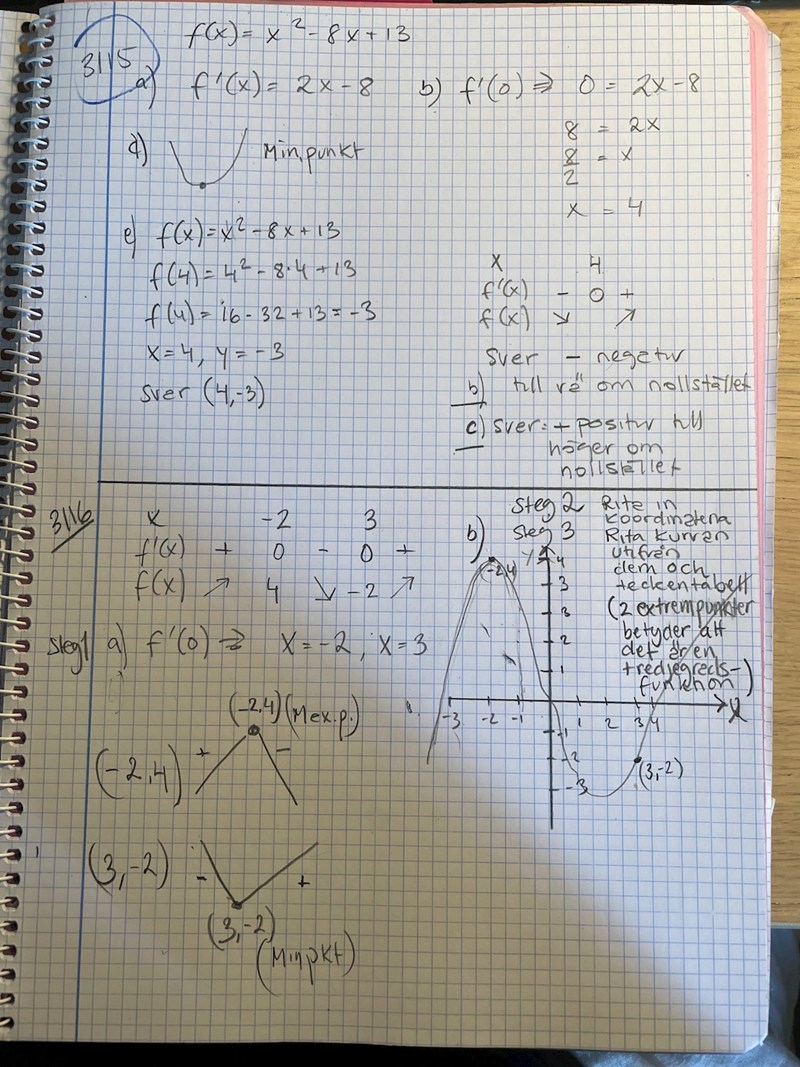 f(x) = x² - 8x + 13
3115
a) f'(x) = 2x - 8
b) f'(0) ⇒ 0 = 2x - 8
8 = 2x
8/2 = x
x = 4
d) Min.punkt
e) f(x) = x² - 8x + 13
f(4) = 4² - 8·4 + 13
f(4) = 16 - 32 + 13 = -3
x = 4, y = -3
Svar (4,-3)
x 4
f'(x) - 0 +
f(x) ↘ ↗
Svar - negativ
b) till vä om nollstället
c) Svar: + positiv till
höger om
nollstället
3116
x -2 3
f'(x) + 0 - 0 +
f(x) ↗ 4 ↘ -2 ↗
Steg1 a) f'(0) ⇒ x = -2, x = 3
(-2,4) (Max.p.)
(-2,4) + -
(3,-2) - +
(3,-2)
(Minpkt)
b) Steg 2 Rita in
koordinatena
Steg 3 Rita kurvan
utifrån
dem och
teckentabell
(2 extrempunkter
betyder att
det är en
tredjegrads-
funktion)
y 4
(-2,4)
3
3
2
1
-3 -2 -1 1 2 3 4 x
-1
-2
(3,-2)
-3